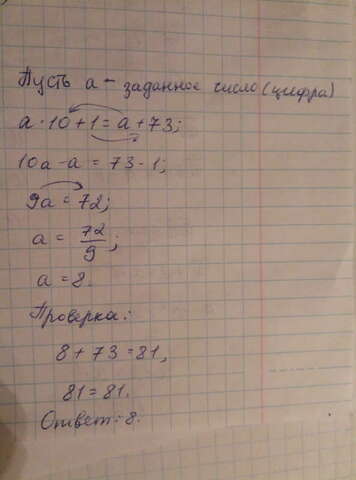 Пусть а - заданное число (цифра)
а · 10 + 1 = а + 73;
10а - а = 73 - 1;
9а = 72;
а = 72/9;
а = 8.
Проверка:
8 + 73 = 81,
81 = 81.
Ответ: 8.